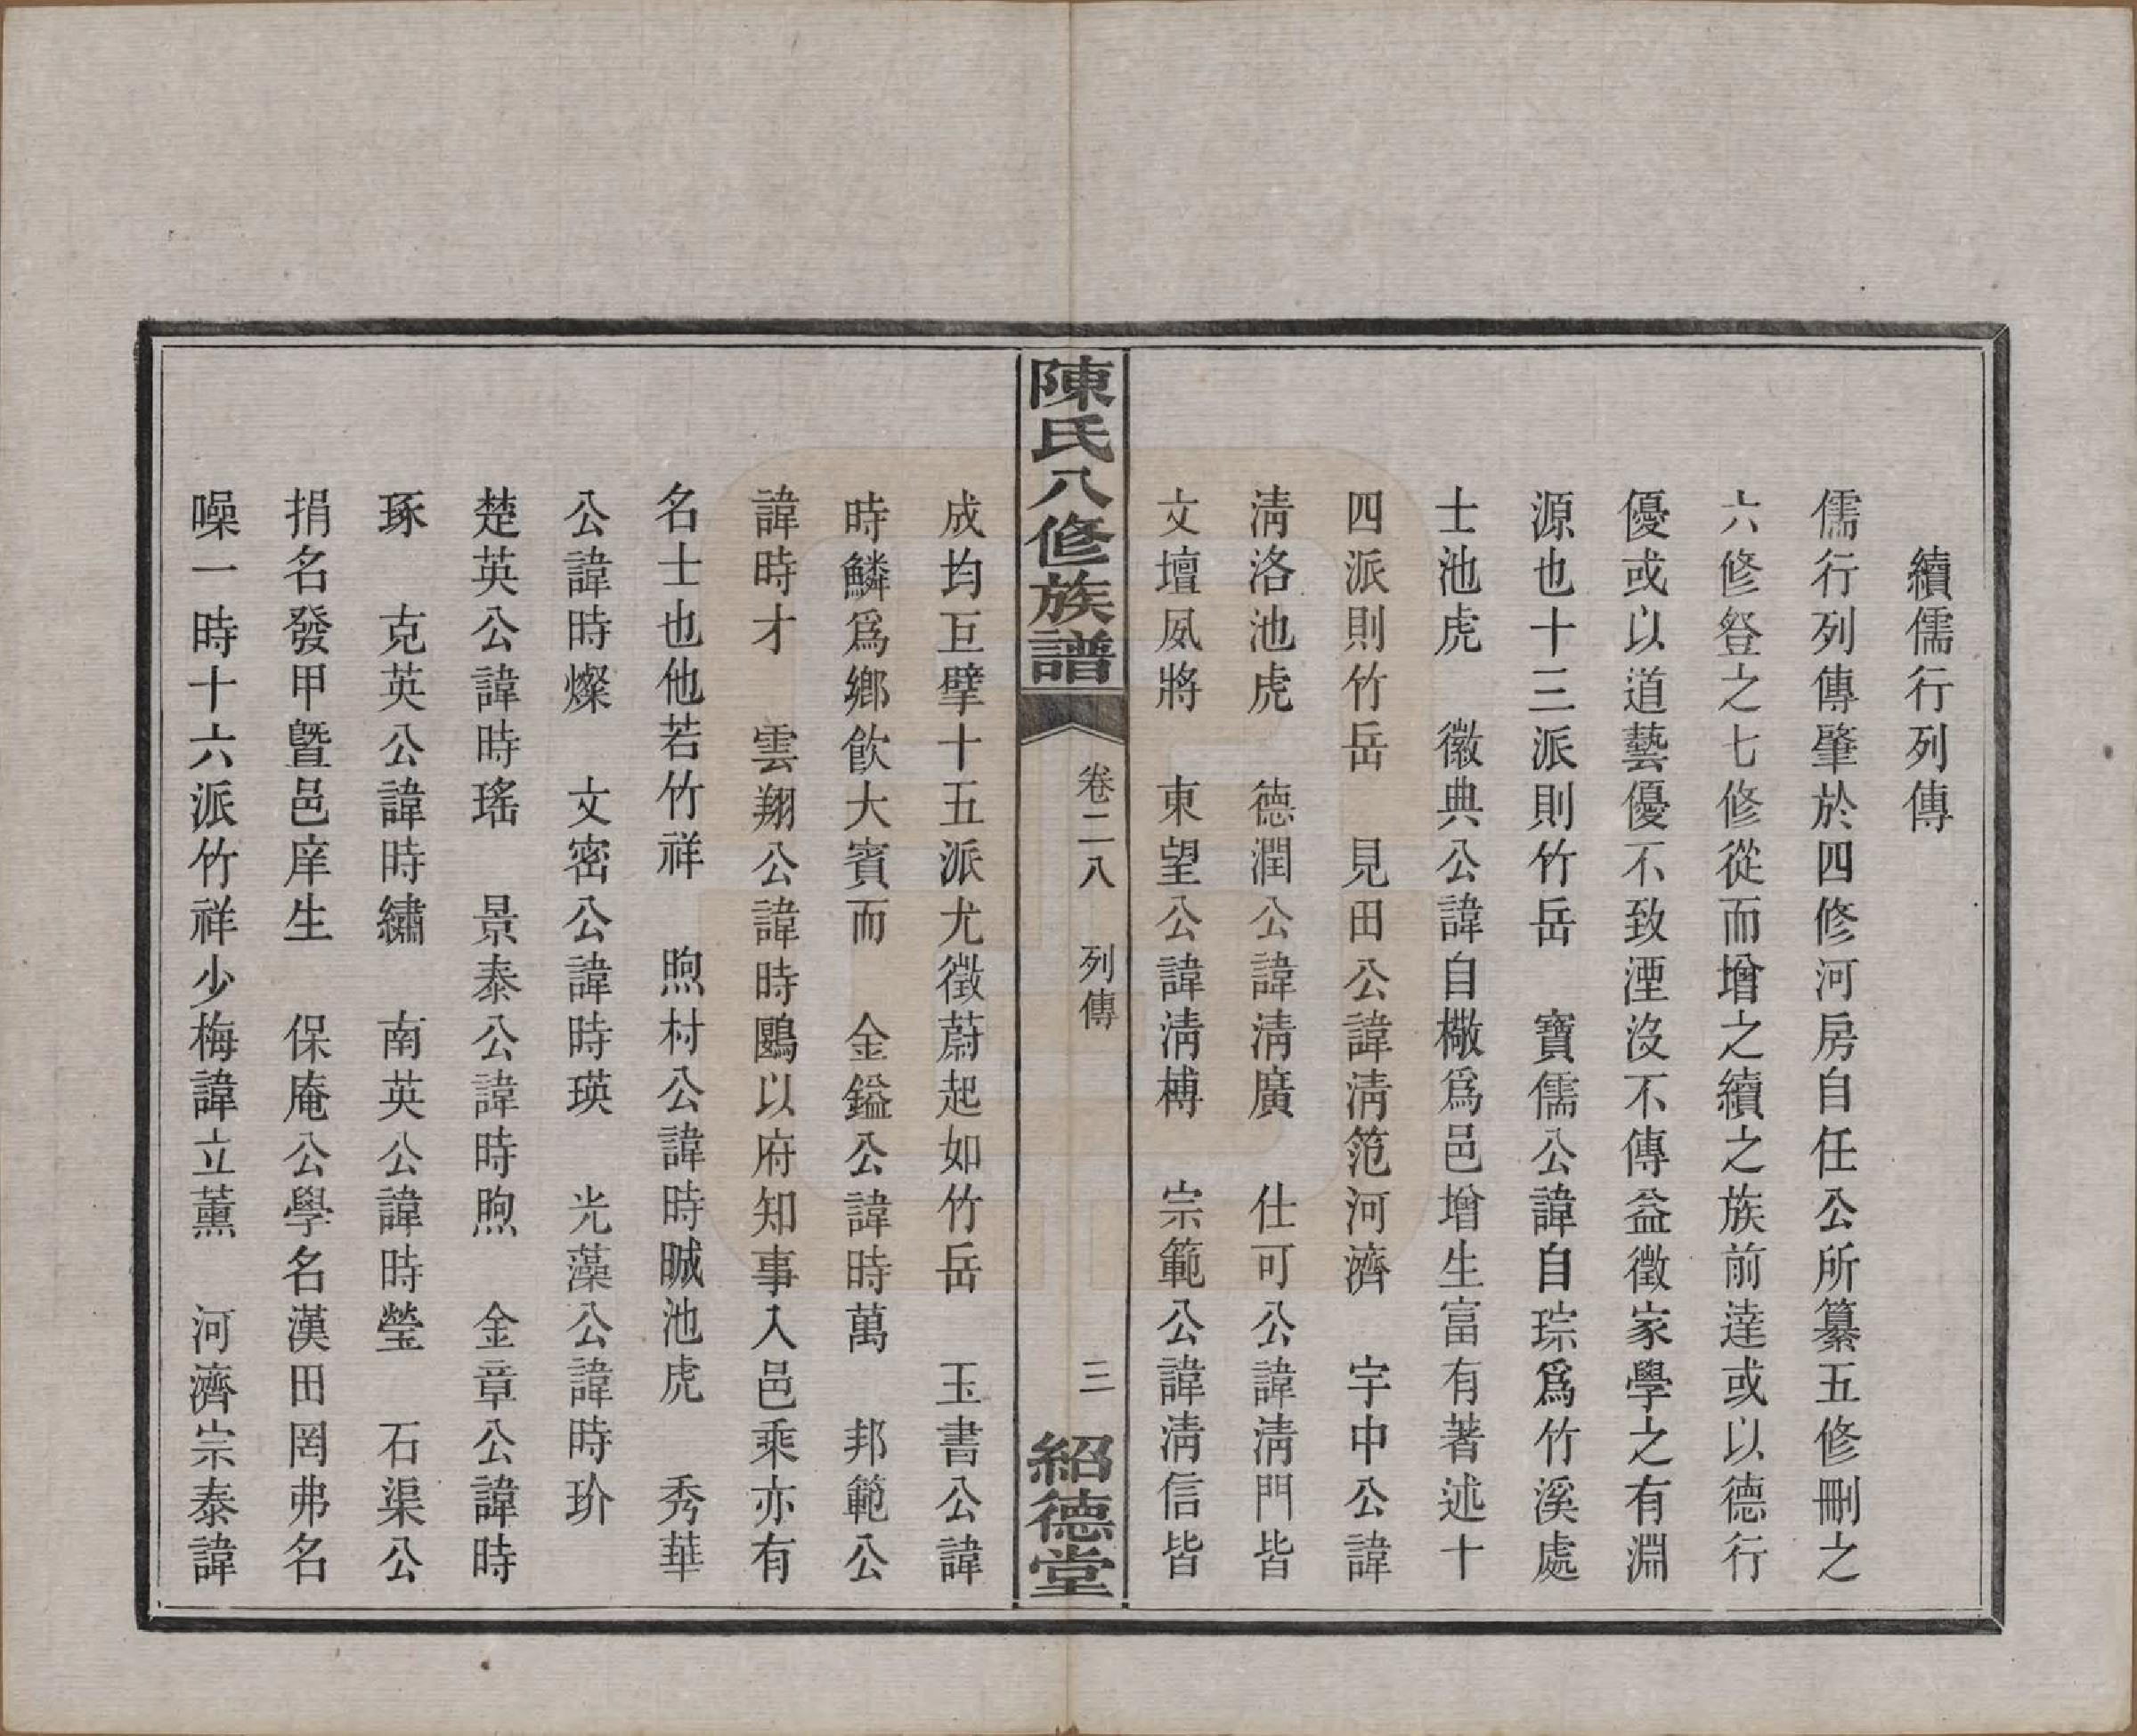 續儒行列傳
儒行列傳肇於四修河房自任公所纂五修刪之
六修登之七修從而增之續之族前達或以德行
優或以道藝優不致湮沒不傳益徵家學之有淵
源也十三派則竹岳　寶儒公諱自琮爲竹溪處
士池虎　徽典公諱自檄爲邑增生富有著述十
四派則竹岳　見田公諱淸范河濟　宇中公諱
淸洛池虎　德潤公諱淸廣　仕可公諱淸門皆
文壇夙將　東望公諱淸榑　宗範公諱淸信皆
陳氏八修族譜　卷二八　列傳　三　紹德堂
成均巨擘十五派尤徵蔚起如竹岳　玉書公諱
時鱗爲鄉飮大賓而　金鎰公諱時萬　邦範公
諱時才　雲翔公諱時鷗以府知事入邑乘亦有
名士也他若竹祥　煦村公諱時晠池虎　秀華
公諱時燦　文密公諱時瑛　光藻公諱時玠
楚英公諱時瑤　景泰公諱時煦　金章公諱時
琢　克英公諱時繡　南英公諱時瑩　石渠公
捐名發甲曁邑庠生　保庵公學名漢田罔弗名
噪一時十六派竹祥少梅諱立薰　河濟宗泰諱